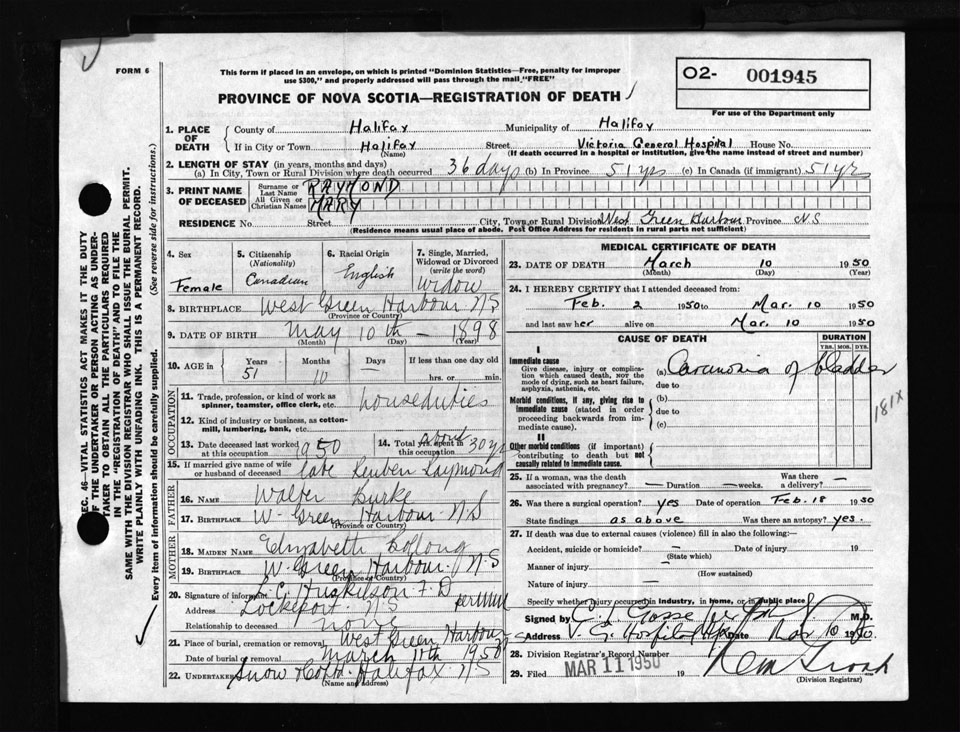 FORM 6
This form if placed in an envelope, on which is printed "Dominion Statistics—Free, penalty for improper
use $300," and properly addressed will pass through the mail "FREE"
PROVINCE OF NOVA SCOTIA—REGISTRATION OF DEATH
O2- 001945
For use of the Department only
SEC. 46—VITAL STATISTICS ACT MAKES IT THE DUTY
OF THE UNDERTAKER OR PERSON ACTING AS UNDER-
TAKER TO OBTAIN ALL THE PARTICULARS REQUIRED
IN THE "REGISTRATION OF DEATH" AND TO FILE THE
SAME WITH THE DIVISION REGISTRAR WHO SHALL ISSUE THE BURIAL PERMIT.
WRITE PLAINLY WITH UNFADING INK. THIS IS A PERMANENT RECORD.
Every item of information should be carefully supplied. (See reverse side for instructions.)
1. PLACE OF DEATH
County of Halifax Municipality of Halifax
If in City or Town Halifax Street Victoria General Hospital House No.
(Name) (If death occurred in a hospital or institution, give the name instead of street and number)
2. LENGTH OF STAY (in years, months and days)
(a) In City, Town or Rural Division where death occurred 36 days (b) In Province 51 yrs (c) In Canada (if immigrant) 51 yrs
3. PRINT NAME OF DECEASED
Surname or Last Name RAYMOND
All Given or Christian Names MARY
RESIDENCE No. Street City, Town or Rural Division West Green Harbour Province N.S
(Residence means usual place of abode. Post Office Address for residents in rural parts not sufficient)
4. Sex Female
5. Citizenship (Nationality) Canadian
6. Racial Origin English
7. Single, Married, Widowed or Divorced (write the word) Widow
8. BIRTHPLACE West Green Harbour N.S
(Province or Country)
9. DATE OF BIRTH May 10th - 1898
(Month) (Day) (Year)
10. AGE in Years 51 Months 10 Days — If less than one day old hrs. or min.
OCCUPATION
11. Trade, profession, or kind of work as spinner, teamster, office clerk, etc. houseduties
12. Kind of industry or business, as cotton-mill, lumbering, bank, etc.
13. Date deceased last worked at this occupation 1950
14. Total yrs. spent in this occupation about 30 yrs
15. If married give name of wife or husband of deceased late Reuben Raymond
FATHER
16. Name Walter Burke
17. Birthplace W. Green Harbour N.S
(Province or Country)
MOTHER
18. Maiden Name Elizabeth
19. Birthplace W. Green Harbour. N.S
(Province or Country)
20. Signature of informant C. Huskilson F.D
Address Lockeport N.S
Relationship to deceased none
21. Place of burial, cremation or removal West Green Harbour
Date of burial or removal March 11th 1950
22. Undertaker Snow & Co. Halifax N.S
(Name and Address)
MEDICAL CERTIFICATE OF DEATH
23. DATE OF DEATH March 10 1950
(Month) (Day) (Year)
24. I HEREBY CERTIFY that I attended deceased from:
Feb. 2 1950 to Mar. 10 1950
and last saw her alive on Mar. 10 1950
CAUSE OF DEATH DURATION
YRS. MOS. DYS.
I
Immediate cause
Give disease, injury or complication which caused death, NOT the mode of dying, such as heart failure, asphyxia, asthenia, etc.
(a) Carcinoma of bladder
due to
Morbid conditions, if any, giving rise to immediate cause (stated in order proceeding backwards from immediate cause).
(b)
due to
(c)
181X
II
Other morbid conditions (if important) contributing to death but not causally related to immediate cause.
25. If a woman, was the death associated with pregnancy? — Duration — weeks. Was there a delivery? —
26. Was there a surgical operation? yes Date of operation Feb. 18 1950
State findings as above Was there an autopsy? yes.
27. If death was due to external causes (violence) fill in also the following:
Accident, suicide or homicide? — Date of injury 19
(State which)
Manner of injury —
(How sustained)
Nature of injury —
Specify whether injury occurred in industry, in home, or in public place
Signed by C. L. Gosse M.D.
Address V. G. Hospital Hfx Date Mar 10 1950.
28. Division Registrar's Record Number
29. Filed MAR 11 1950 19
(Division Registrar)